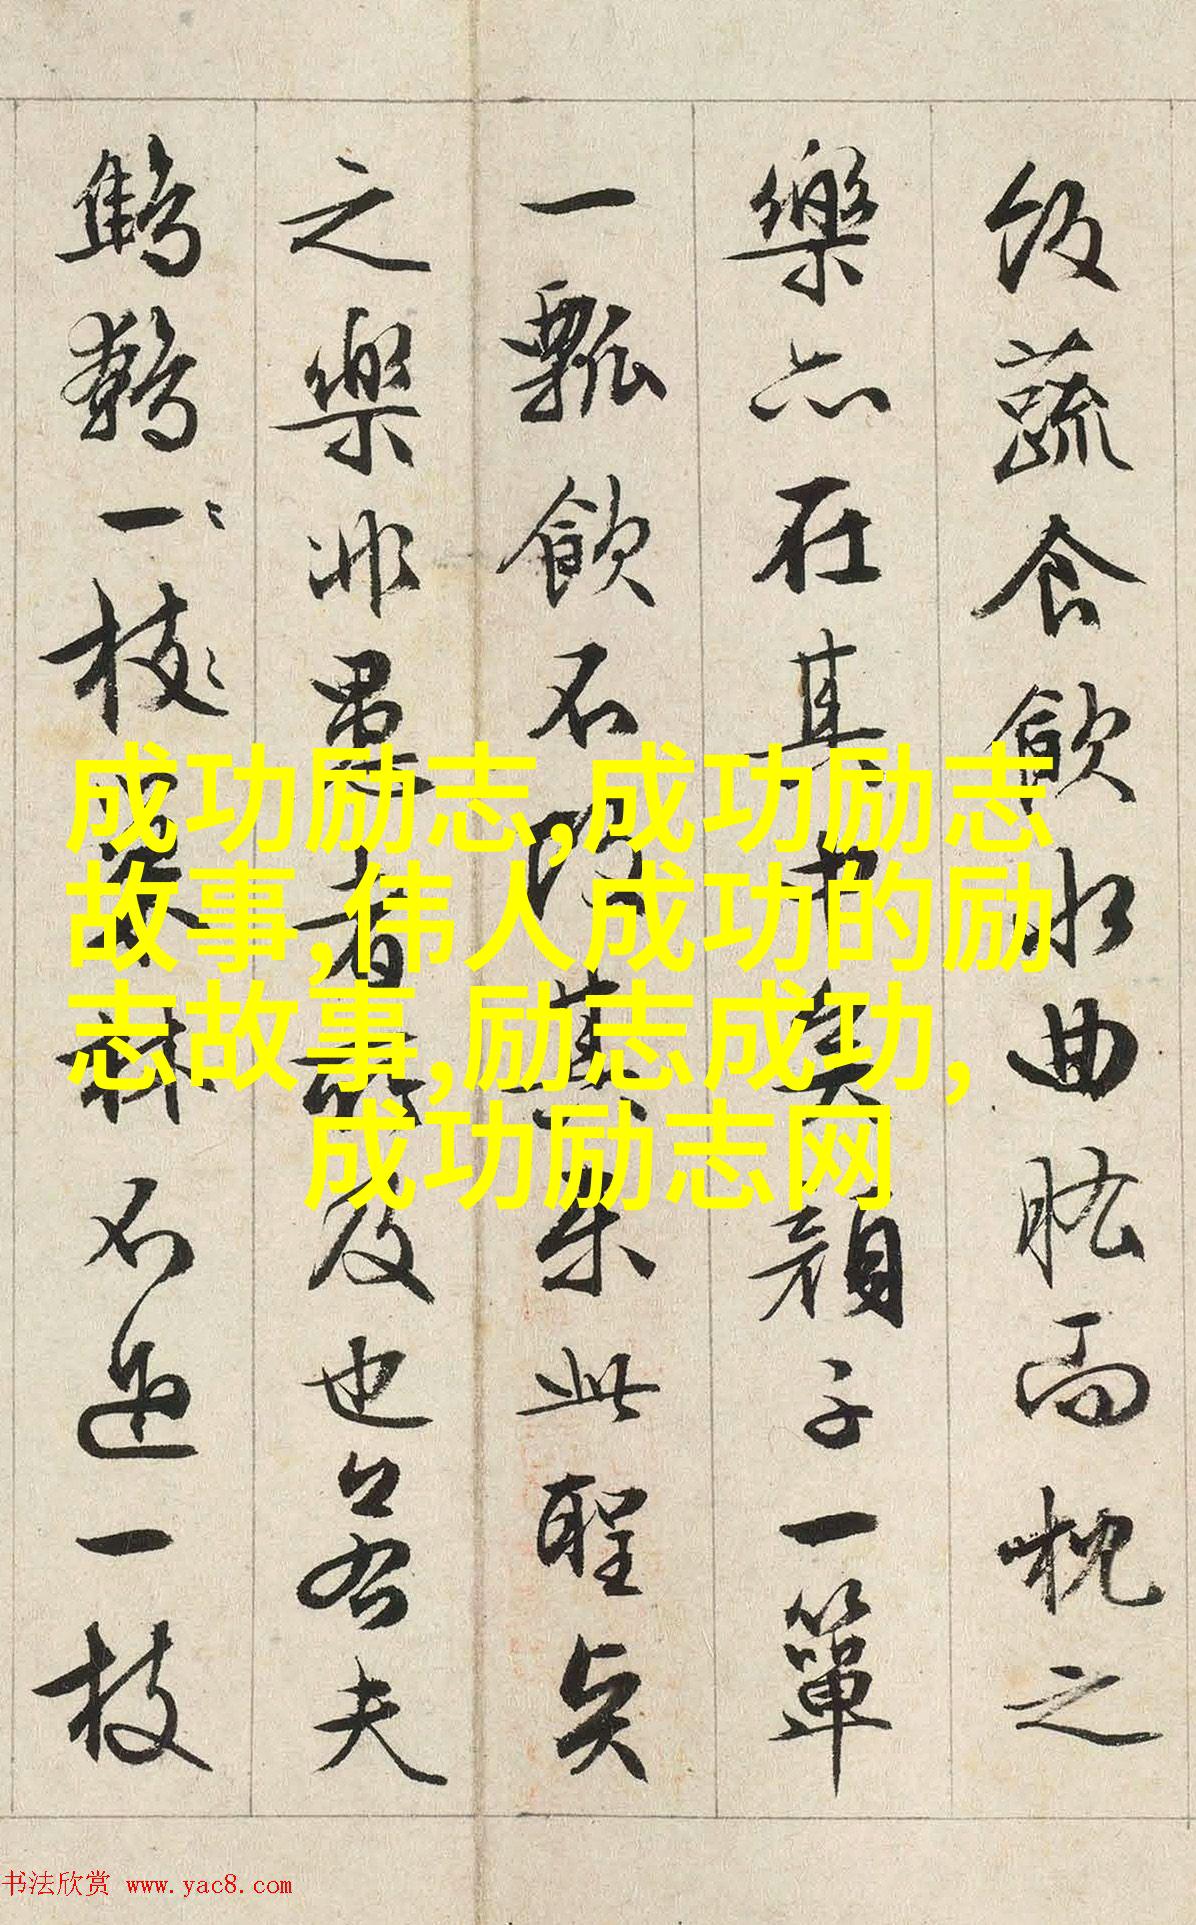 飯蔬食飲水曲肱而枕之
樂亦在其中矣顏子一簞
一瓢飲不改其樂此聖賢
之樂非愚者所及也若夫
鷦鷯一枝巢林不過一枝
成功励志,成功励志
故事,伟人成功的励
志故事,励志成功,
成功励志网
书法欣赏 www.yac8.com